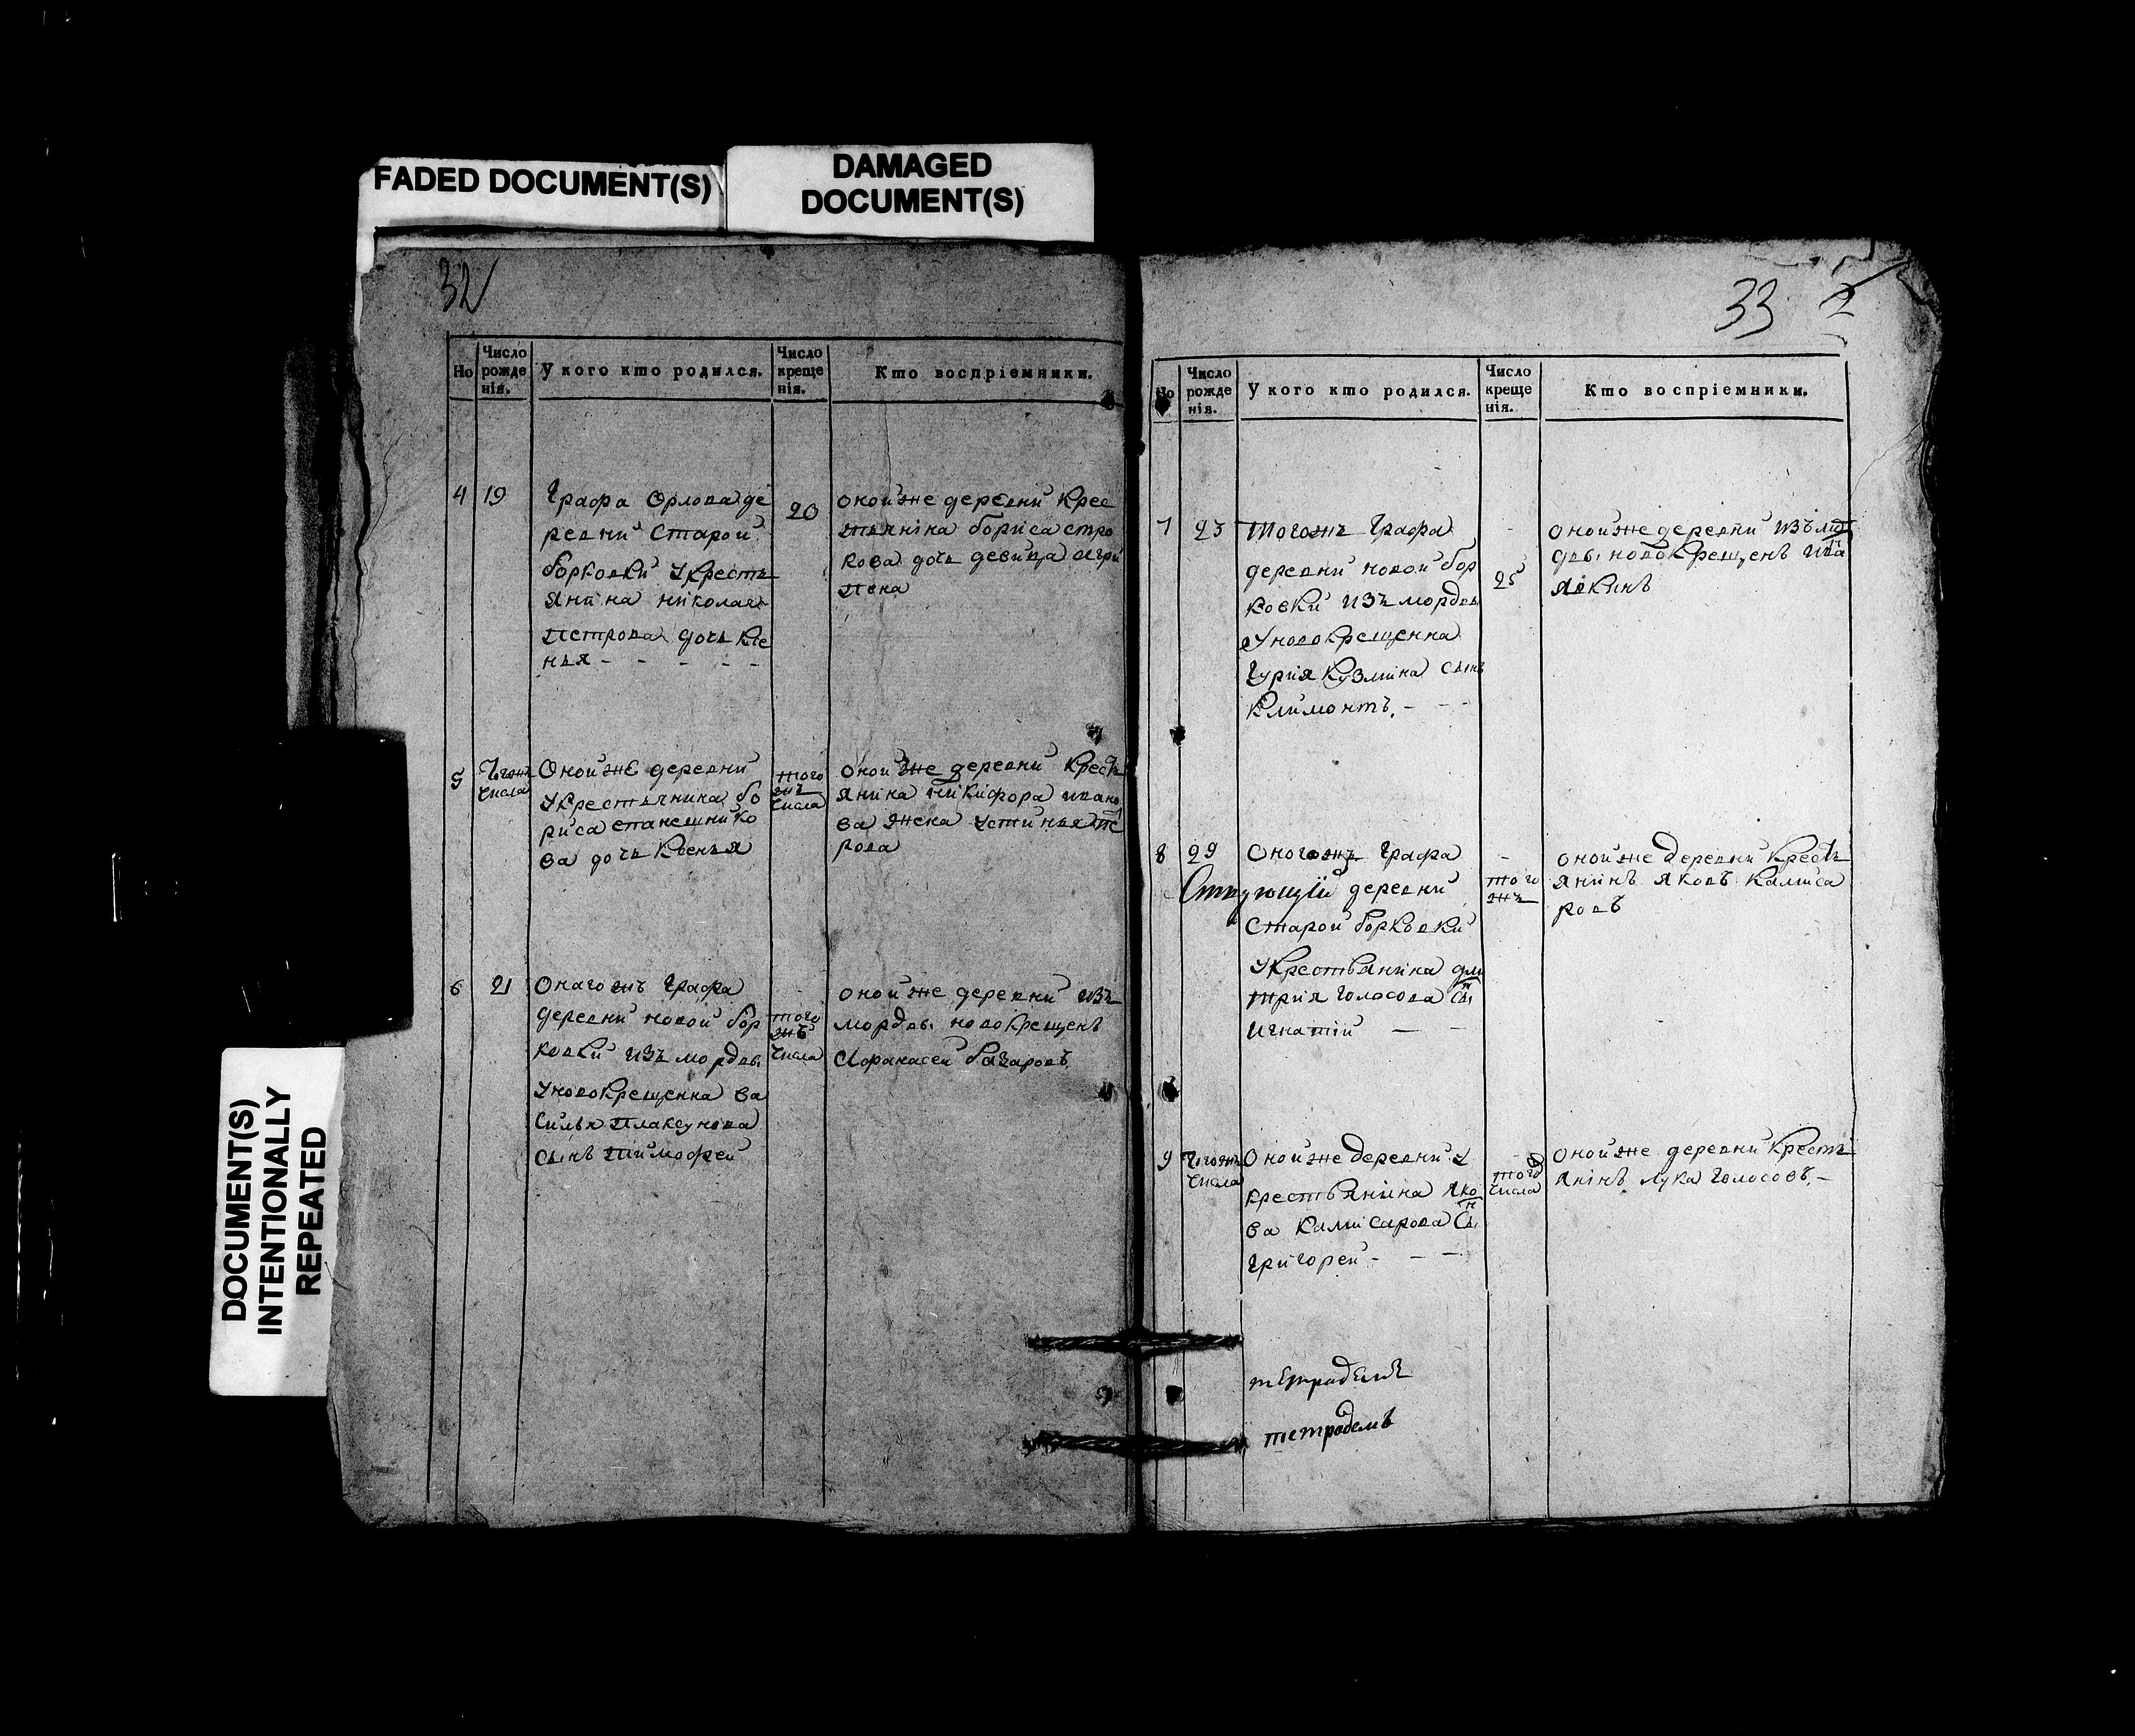 FADED DOCUMENT(S)
DAMAGED
DOCUMENT(S)
DOCUMENT(S)
INTENTIONALLY
REPEATED
32
Но
Число
рожде
нія.
У кого кто родился.
Число
креще
нія.
Кто воспріемники.
4
19
Графа Орлова де
ревни Старой
борковки Укресть
янина николая
петрова дочь Ксе
нья - - - - -
20
оной же деревни Крес
тьянина бориса стро
кова дочь девица агри
пена
5
Тогожъ
числа
Оной же деревни
Укрестьянина бо
риса станешнико
ва дочь Ксенья
того
жъ
числа
Оной же деревни Кресть
янина никифора ивано
ва жена устинья пе
рова
6
21
Онагожъ Графа
деревни новой бор
ковки изъ мордвы
Уновокрещенна ва
силья плаксунова
сынъ тимофей
того
жъ
числа
оной же деревни изъ
мордвы новокрещенъ
Афанасей базаровъ
33
2
Но
Число
рожде
нія.
У кого кто родился.
Число
креще
нія.
Кто воспріемники.
7
23
Тогожъ Графа
деревни новой бор
ковки изъ мордвы
Уновокрещенна
Гурия Кузмина сынъ
Климонтъ. - - -
25
оной же деревни изъ
новокрещенъ
8
29
Оногожъ Графа
деревни
Старой борковки
Укрестьянина дми
трия Голосова сынъ
игнатий — —
того
жъ
оной же деревни Кресть
янинъ Яковъ Камиса
ровъ
9
Тогожъ
числа
Оной же деревни у
крестьянина Яко
ва Камисарова сынъ
григорей - - —
того
числа
оной же деревни Кресть
янинъ лука Голосовъ. –
тетрадемъ
тетрадемъ